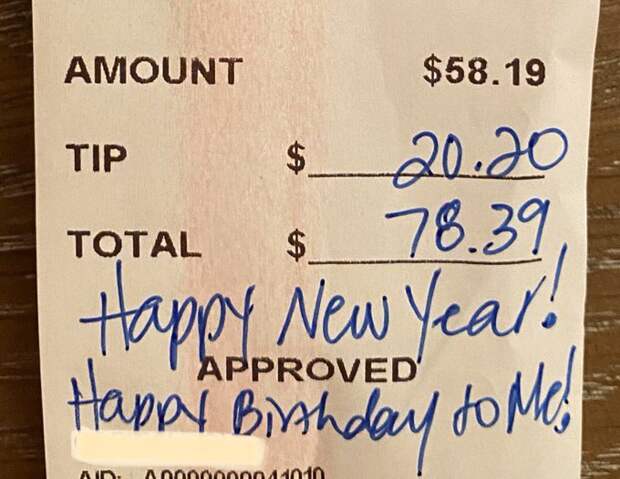 AMOUNT $58.19
TIP $ 20.20
TOTAL $ 78.39
Happy New Year!
APPROVED
Happy Birthday to Me!
AID: A0000000041010